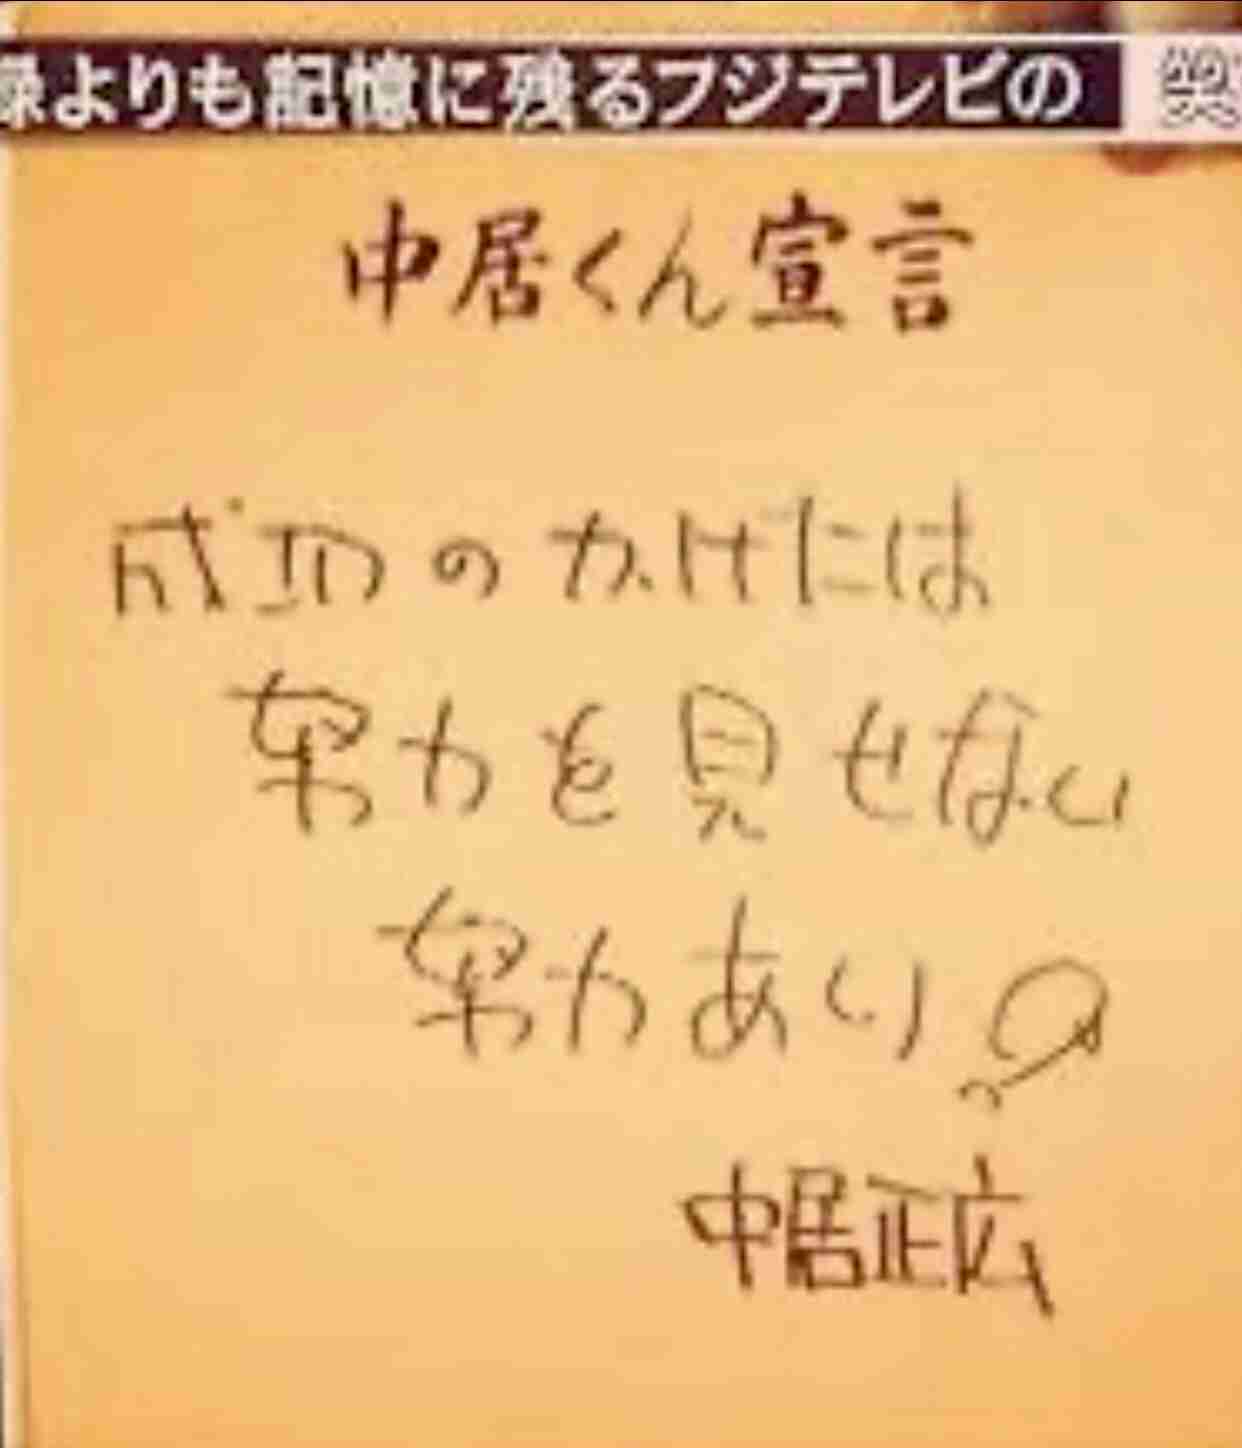 録よりも記憶に残るフジテレビの 笑
中居くん宣言
成功のかげには
努力を見せない
努力あり
中居正広